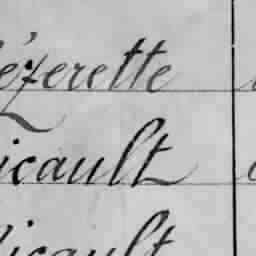 ézerette
icault
icault